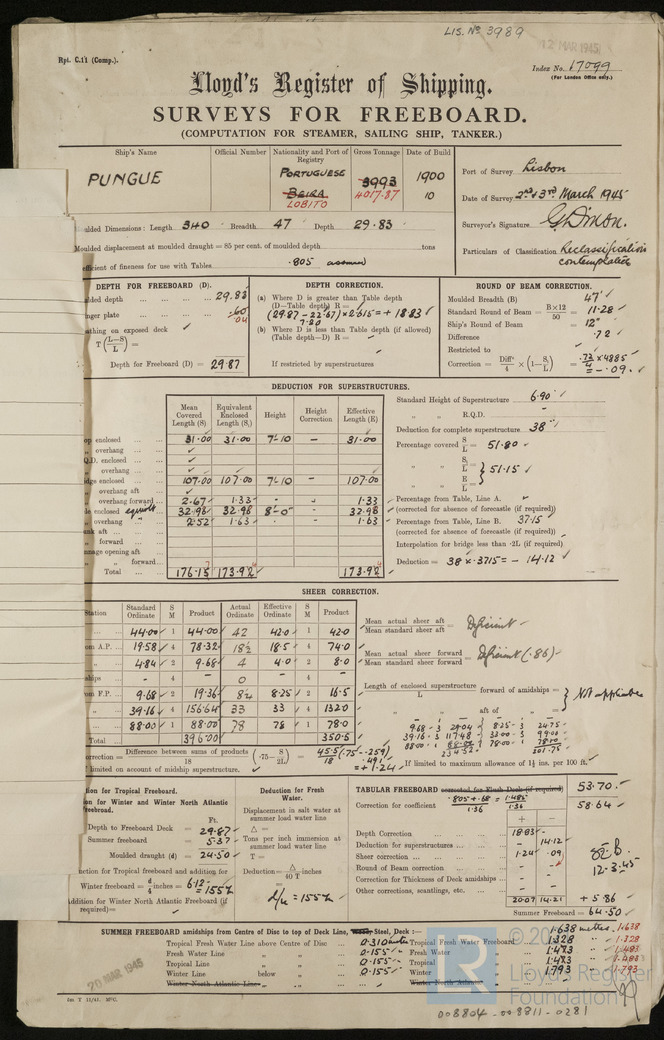 LIS. No 3989
12 MAR 1945
Rpt. C.11 (Comp.).
Index No. 17099
(For London Office only.)
Lloyd's Register of Shipping.
SURVEYS FOR FREEBOARD.
(COMPUTATION FOR STEAMER, SAILING SHIP, TANKER.)
Ship's Name Official Number Nationality and Port of Registry Gross Tonnage Date of Build
PUNGUE PORTUGUESE BEIRA LOBITO 3993 4017.87 1900 10
Port of Survey Lisbon
Date of Survey 2nd & 3rd March 1945
Surveyor's Signature
Particulars of Classification Reclassification contemplated
ulded Dimensions: Length 340 Breadth 47 Depth 29.83
Moulded displacement at moulded draught = 85 per cent. of moulded depth tons
efficient of fineness for use with Tables .805 assumed
DEPTH FOR FREEBOARD (D).
ulded depth 29.83
nger plate .04
athing on exposed deck
T (L-S/L) =
Depth for Freeboard (D) = 29.87
DEPTH CORRECTION.
(a) Where D is greater than Table depth
(D—Table depth) R =
(29.87 - 22.67) × 2.615 = + 18.83
7.20
(b) Where D is less than Table depth (if allowed)
(Table depth—D) R =
If restricted by superstructures
ROUND OF BEAM CORRECTION.
Moulded Breadth (B) 47'
Standard Round of Beam = B×12/50 = 11.28
Ship's Round of Beam = 12"
Difference .72
Restricted to
Correction = Diff/4 × (1-S/L) = .72/4 × .4885 = - .09
DEDUCTION FOR SUPERSTRUCTURES.
Mean Covered Length (S) Equivalent Enclosed Length (S₁) Height Height Correction Effective Length (E)
op enclosed 31.00 31.00 7'-10 – 31.00
„ overhang
Q.D. enclosed
„ overhang
dge enclosed 107.00 107.00 7'-10 – 107.00
„ overhang aft
„ overhang forward 2.67 1.33 - 1.33
de enclosed 32.98 32.98 8'-0" - 32.98
„ overhang 2.52 1.63 - 1.63
nk aft
„ forward
nnage opening aft
„ „ forward
Total 176.17 173.94 173.94
Standard Height of Superstructure 6.90
„ „ R.Q.D. -
Deduction for complete superstructure 38"
Percentage covered S/L = 51.80
„ „ S₁/L
„ „ E/L } = 51.15
Percentage from Table, Line A.
(corrected for absence of forecastle (if required))
Percentage from Table, Line B. 37.15
(corrected for absence of forecastle (if required))
Interpolation for bridge less than ·2L (if required)
Deduction = 38 × .3715 = - 14.12
SHEER CORRECTION.
Station Standard Ordinate S M Product Actual Ordinate Effective Ordinate S M Product
44.00 1 44.00 42 42.0 1 42.0
om A.P. 19.58 4 78.32 18½ 18.5 4 74.0
„ 4.84 2 9.68 4 4.0 2 8.0
ships - 4 - 0 - 4 -
om F.P. 9.68 2 19.36 8¼ 8.25 2 16.5
„ 39.16 4 156.64 33 33 4 132.0
„ 88.00 1 88.00 78 78 1 78.0
Total 396.00 350.5
Mean actual sheer aft
Mean standard sheer aft = Deficient
Mean actual sheer forward
Mean standard sheer forward = Deficient (.86)
Length of enclosed superstructure/L forward of amidships =
„ „ aft of „ = } Not applicable
9.68 - 3 29.04 8.25 - 3 24.75
39.16 - 3 117.48 33.00 - 3 99.00
88.00 - 1 88.00 78.00 - 1 78.00
234.52 201.75
orrection = Difference between sums of products/18 (·75- S/2L) = 45.5/18 (.75 - .259) .491 = + 1.24
limited on account of midship superstructure.
If limited to maximum allowance of 1½ ins. per 100 ft.
ion for Tropical Freeboard.
on for Winter and Winter North Atlantic
reeboard.
Ft.
Depth to Freeboard Deck = 29.87
Summer freeboard = 5.37
Moulded draught (d) = 24.50
uction for Tropical freeboard and addition for
Winter freeboard = d/4 inches = 6.12 = 155 %
ddition for Winter North Atlantic Freeboard (if
required) =
Deduction for Fresh Water.
Displacement in salt water at summer load water line
Δ =
Tons per inch immersion at summer load water line
T =
Deduction = Δ/40 T inches
= 155 %
TABULAR FREEBOARD corrected for Flush Deck (if required) 53.70
Correction for coefficient .805 + .68/1.36 = 1.485/1.36 58.64
+ −
Depth Correction 18.83 -
Deduction for superstructures - 14.12
Sheer correction 1.24 .09
Round of Beam correction - -
Correction for Thickness of Deck amidships - -
Other corrections, scantlings, etc. - -
20.07 14.21 + 5.86
Summer Freeboard = 64.50
12-3-45
SUMMER FREEBOARD amidships from Centre of Disc to top of Deck Line, Wood, Steel, Deck :— 1.638 metres. 1.638
Tropical Fresh Water Line above Centre of Disc 0.310 metre Tropical Fresh Water Freeboard 1.328 „ 1.328
Fresh Water Line „ „ 0.155 Fresh Water „ 1.483 „ 1.483
Tropical Line „ „ 0.155 Tropical „ 1.483 „ 1.483
Winter Line below „ 0.155 Winter „ 1.793 „ 1.793
Winter North Atlantic Line „ Winter North Atlantic „
20 MAR 1945
1m T 11/41. MºC.
LR
© 20
Lloyd's Register
Foundation
008804-008811-0281